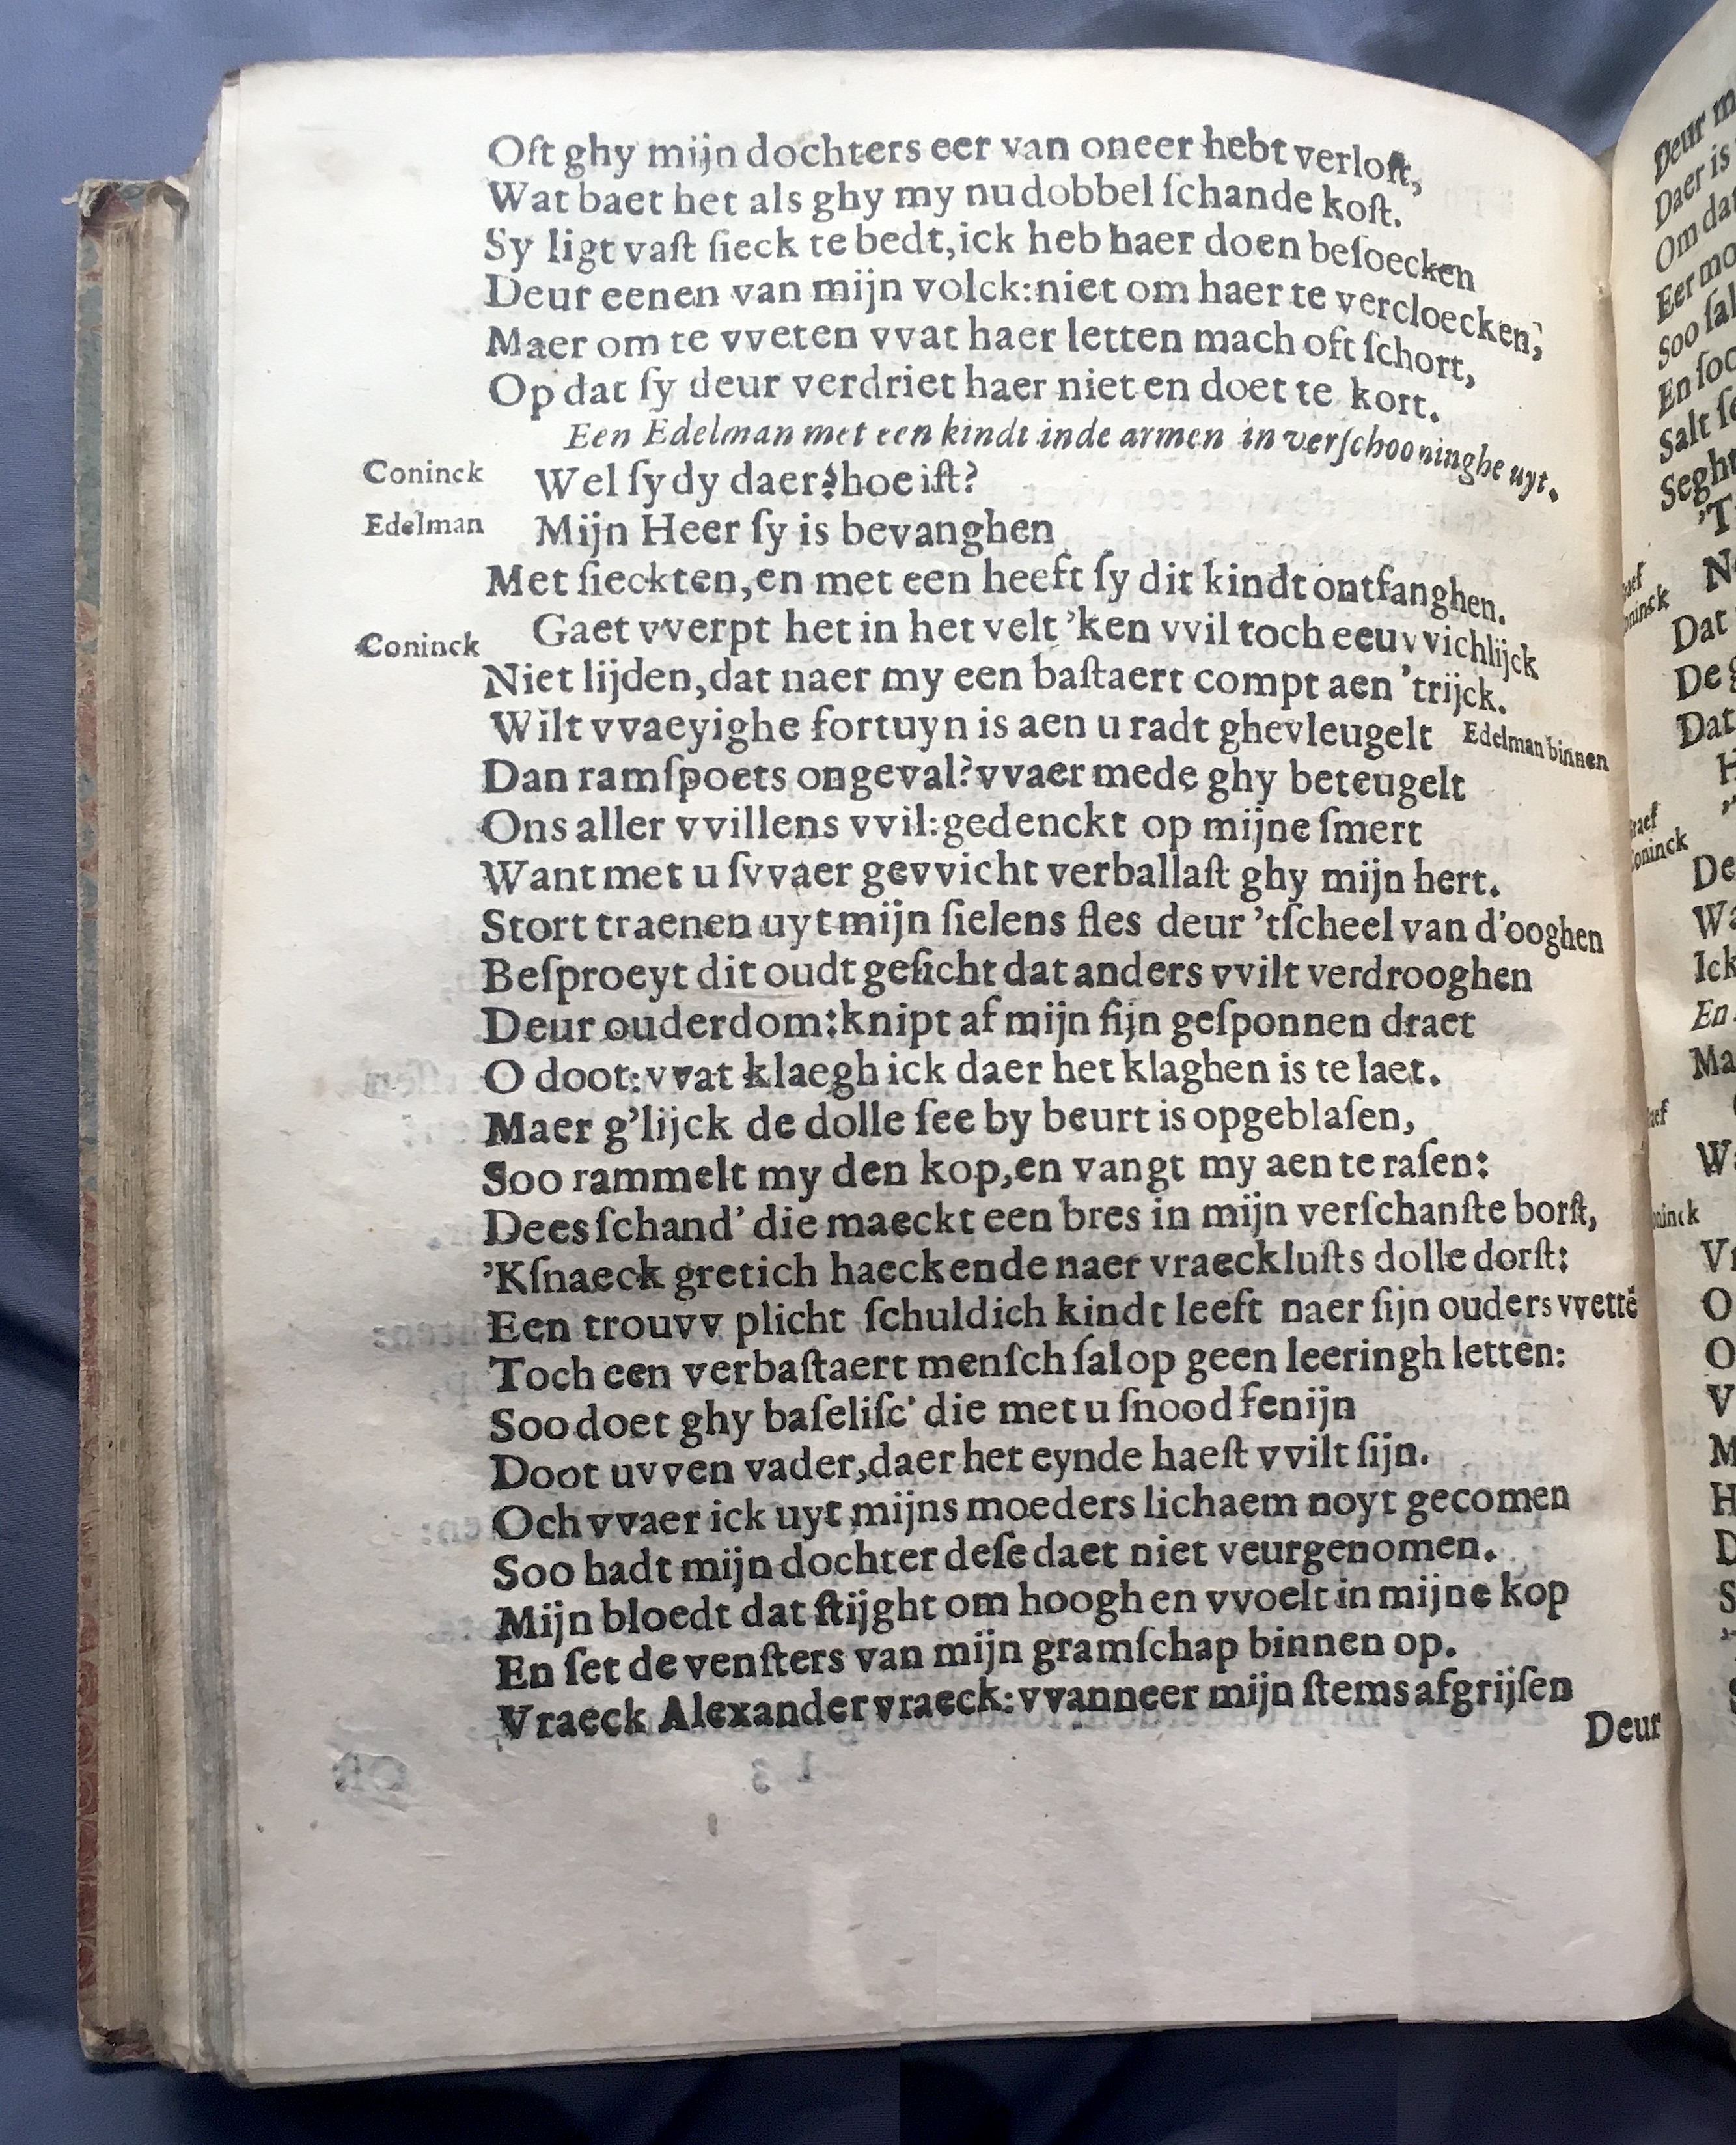 Oft ghy mijn dochters eer van oneer hebt verloſt,
Wat baet het als ghy my nu dobbel ſchande koſt.
Sy ligt vaſt ſieck te bedt, ick heb haer doen beſoecken
Deur eenen van mijn volck: niet om haer te vercloecken,
Maer om te vveten vvat haer letten mach oft ſchort,
Op dat ſy deur verdriet haer niet en doet te kort.
Een Edelman met een kindt inde armen in verſchooninghe uyt.
Coninck Wel ſydy daer? hoe iſt?
Edelman Mijn Heer ſy is bevanghen
Met ſieckten, en met een heeft ſy dit kindt ontfanghen.
Coninck Gaet vverpt het in het velt 'ken vvil toch eeuvvichlijck
Niet lijden, dat naer my een baſtaert compt aen 'trijck.
Wilt vvaeyighe fortuyn is aen u radt ghevleugelt Edelman binnen
Dan ramſpoets ongeval? vvaer mede ghy beteugelt
Ons aller vvillens vvil: gedenckt op mijne ſmert
Want met u ſvvaer gevvicht verballaſt ghy mijn hert.
Stort traenen uyt mijn ſielens fles deur 'tſcheel van d'ooghen
Beſproeyt dit oudt geſicht dat anders vvilt verdrooghen
Deur ouderdom: knipt af mijn fijn geſponnen draet
O doot: vvat klaegh ick daer het klaghen is te laet.
Maer g'lijck de dolle ſee by beurt is opgeblaſen,
Soo rammelt my den kop, en vangt my aen te raſen:
Dees ſchand' die maeckt een bres in mijn verſchanſte borſt,
'Kſnaeck gretich haeckende naer vraeckluſts dolle dorſt:
Een trouvv plicht ſchuldich kindt leeft naer ſijn ouders vvettē
Toch een verbaſtaert menſch ſal op geen leeringh letten:
Soo doet ghy baſeliſc' die met u ſnood fenijn
Doot uvven vader, daer het eynde haeſt vvilt ſijn.
Och vvaer ick uyt mijns moeders lichaem noyt gecomen
Soo hadt mijn dochter deſe daet niet veurgenomen.
Mijn bloedt dat ſtijght om hoogh en vvoelt in mijne kop
En ſet de venſters van mijn gramſchap binnen op.
Vraeck Alexander vraeck: vvanneer mijn ſtems afgrijſen
Deur